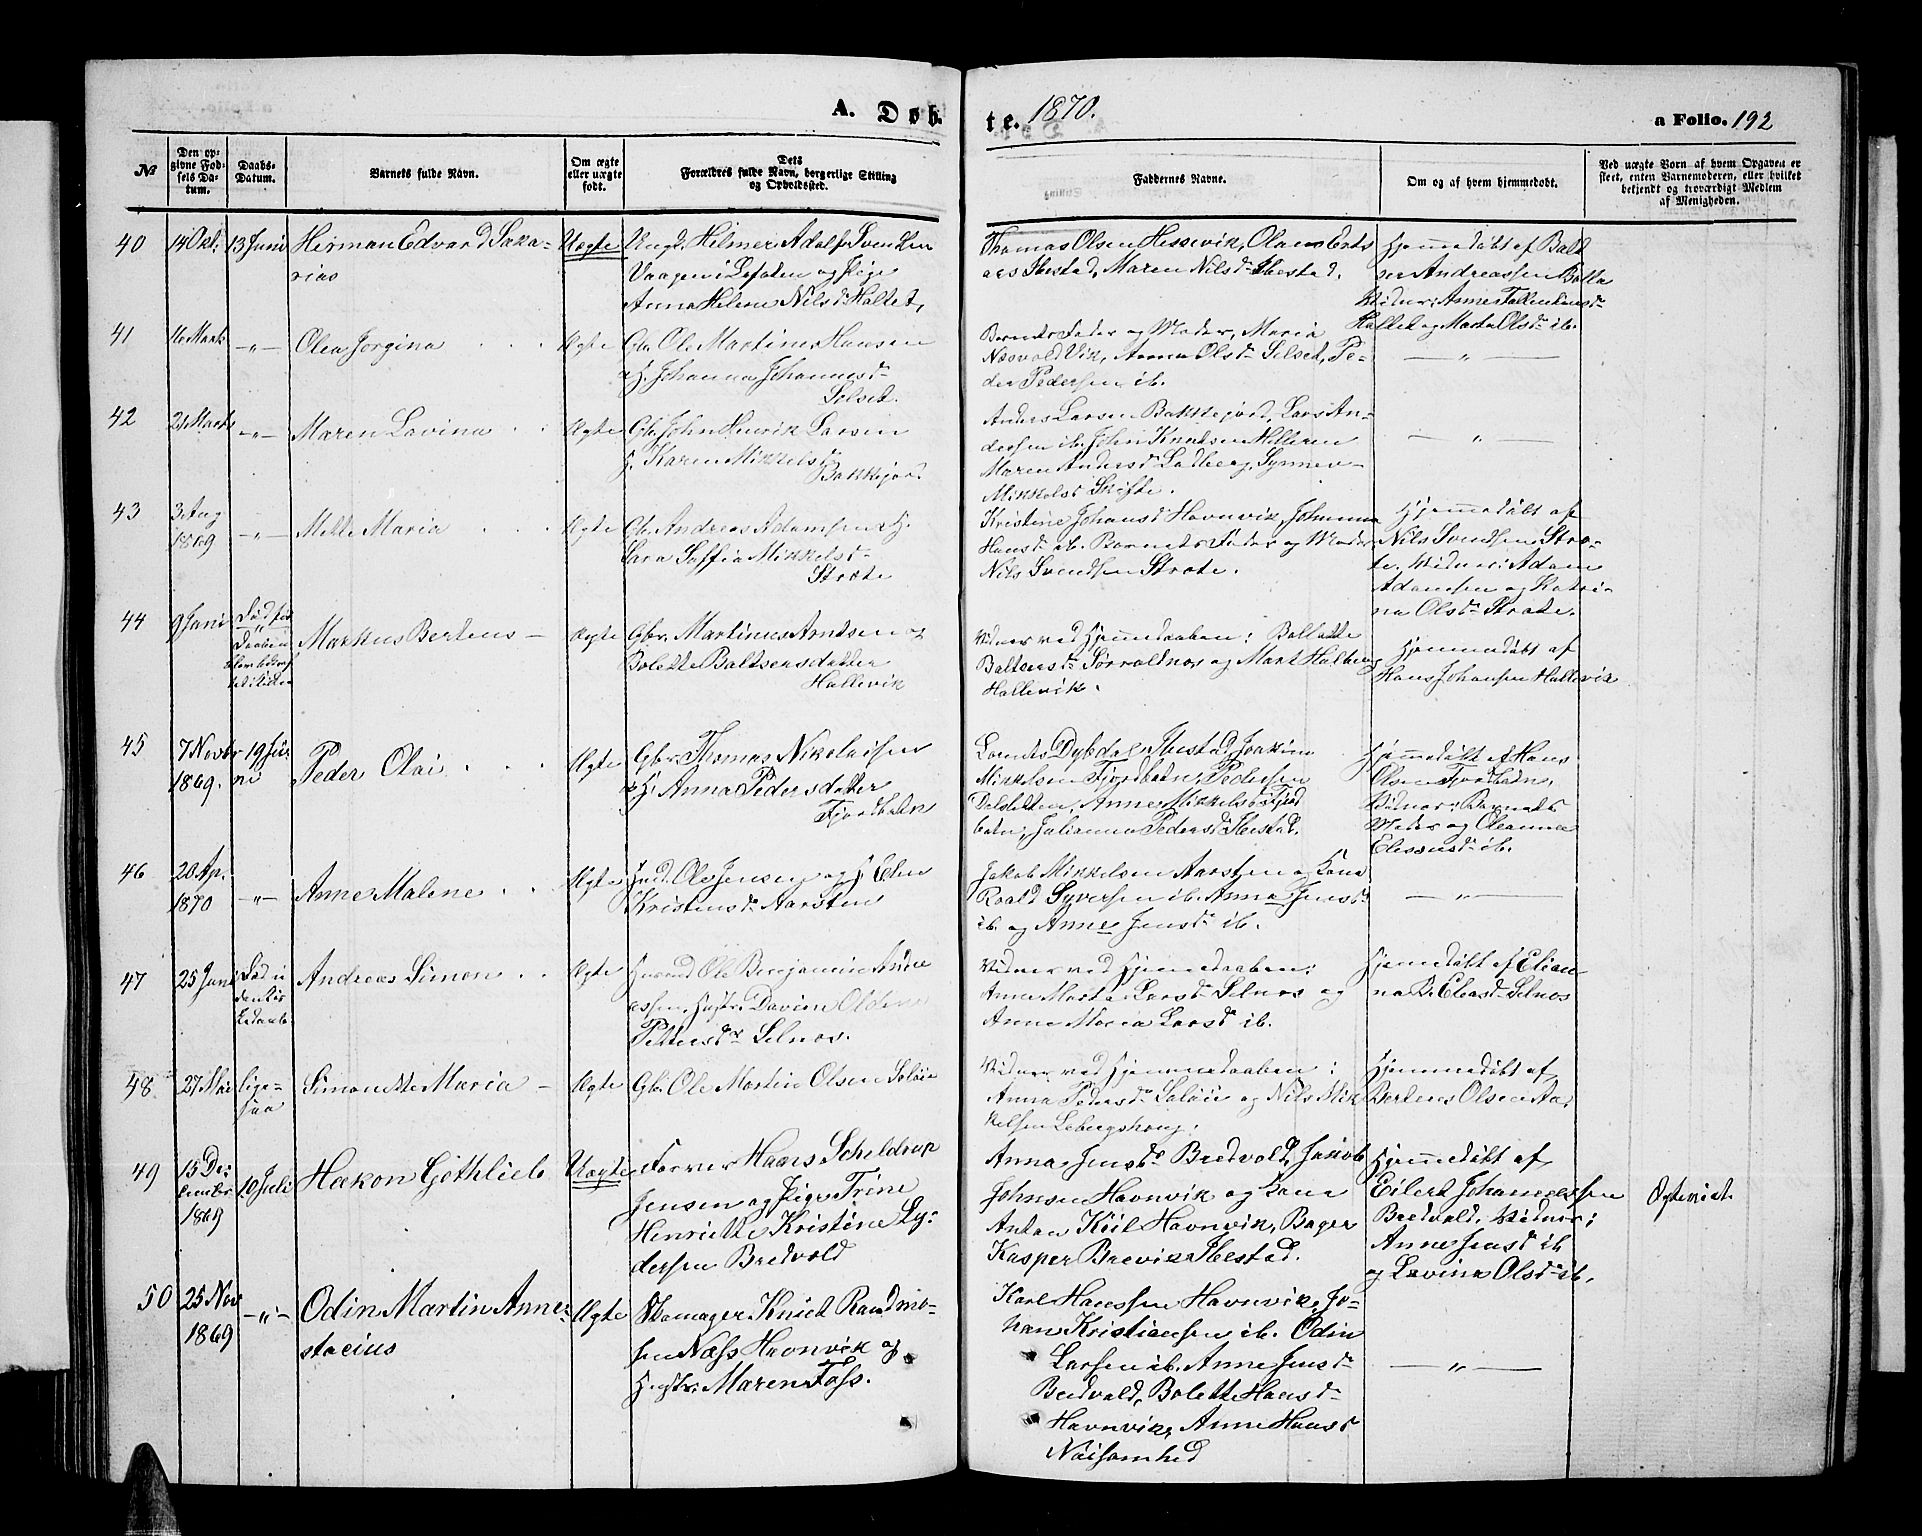 A. Døb-
te. 1870.
a Folio. 192
№
Den opgivne Fødsels Datum.
Daabs-Datum.
Barnets fulde Navn.
Om ægte eller uægte født.
Dets Forældres fulde Navn, borgerlige Stilling og Opholdssted.
Faddernes Navne.
Om og af hvem hjemmedøbt.
Ved uægte Born af hvem Opgaven er skeet, enten Barnemoderen, eller hvilket bekjendt og troværdigt Medlem af Menigheden.
40
14 Okt.
13 Juni
Herman Edvard Saka-
rias
Uægte
Ungk. Hilmer Adolf Svendsen
Vaagen i Lofoten og Pige
Anna Helene Nilsd. Hallet,
Thomas Olsen Hessevik, Olaus
Ibestad, Maren Nilsd. Ibestad.
Hjemmedøbt af Balt
ser Andreassen
Vidner: Anne
Hallet og Marta Olsd. ib.
41
16 Marts
-"-
Olea Jorgina
Ægte
Gbr. Ole Martinus Hansen
og H. Johanna Johannesd.
Selset.
Barnets Fader og Moder, Maria
Næsvold Vik, Anna Olsd. Selset, Pe-
der Pedersen ib.
— " —
42
21 Marts
-"-
Maren Lavina
Ægte
Gbr. John Henrik Larsen
H. Karen Mikkelsd.
Bakkejord.
Anders Larsen Bakkejord, Lars An-
dersen ib. John Knudsen
Maren Andersd. Ladberg, Synnev
Mikkelsd. Skifte.
— " —
43
3 Aug
1869
-"-
Mette Maria
Ægte
Gbr. Andreas Adamsen & H.
Sara Soffia Mikkelsd.
Strøte
Kristine Johansd. Havnvik, Johanna
Hansd. ib. Barnets Fader og Moder,
Nils Svendsen Strøte.
Hjemmedøbt af
Nils Svendsen Strø-
te, Vidner: Adam
Adamsen og Katri-
na Olsd. Strøte.
44
9 Juni
Død før
Daaben
Markus Bertens
Ægte
Gbr. Martinus Arntsen og
Bolette Baltsersdatter
Hallevik
Vidner ved Hjemmedaaben: Bollette
Baltsersd. Sørvoldnes og Mart
Hallevik.
Hjemmedøbt af
Hans Johansen Hallevik
45
7 Novbr
1869.
19 Ju-
ni
Peder Olai
Ægte
Gbr. Thomas Nikolaisen
& H. Anna Pedersdatter
Fjordbotn
Lorents Dybdal, Ibestad, Joakim
Mikkelsen Fjordbotn, Pedersen
Dalsletten, Anne Mikkelsd. Fjord
botn, Julianna Pedersd. Ibestad.
Hjemmedøbt af Hans
Olsen Fjordbotn,
Vidner: Barnets
Moder og Oleanna
Eleseusd. ib.
46
20 Ap.
1870
-"-
Anne Malene
Ægte
Ind. Ole Jensen og H. Elen
Kristensd. Aarsten
Jakob Mikkelsen Aarsten og Kona
Roald Syversen ib. Anna Jensd.
ib. og Anne Jensd. ib.
— " —
47
25 Juni
Andreas Simon
Ægte
Husmd. Ole Benjamin Andre
assen, Hustr. Davine Oldine
Pettersdr. Selnes.
Vidner ved Hjemmedaaben:
Anne Marta Larsd. Selnes og
Anne Maria Larsd. ib.
Hjemmedøbt af Elian-
na B. Eliasd. Selnes
48
27 Mai
lige-
saa
Simonette Maria
Ægte
Gbr. Ole Martin Olsen Soløie
Vidner ved Hjemmedaaben:
Anna Pedersd. Soløie og Nils Mik
kelsen Lebergshoug.
Hjemmedøbt af
Bertens Olsen
49
15 De-
cember
1869
10 Juli
Hakon Gothlieb
Uægte
Farver Hans Scheldrup
Jensen og Pige Trine
Henriette Kristine Ly-
dersen Bredvold
Anna Jensd. Bredvold, Jakob
Johnsen Havnvik og Kona
Anton Kiil Havnvik, Bager
Kasper Brevik Ibestad.
Hjemmedøbt af
Eilert Johannessen
Bredvold, Vidner:
Anne Jensd. ib
og Lavina Olsd. ib.
Ægteviet.
50
25 Nov
1869
-"-
Odin Martin Anne-
stacius
Ægte
Skomager Knut Rasmu-
sen Næss Havnvik og
Hustr. Maren Foss.
Karl Hanssen Havnvik, Jo-
han Kristiansen ib. Odin
Larsen ib. Anne Jensd.
Bredvold, Bolette Hansd.
Havnvik, Anne Hansd
— " —